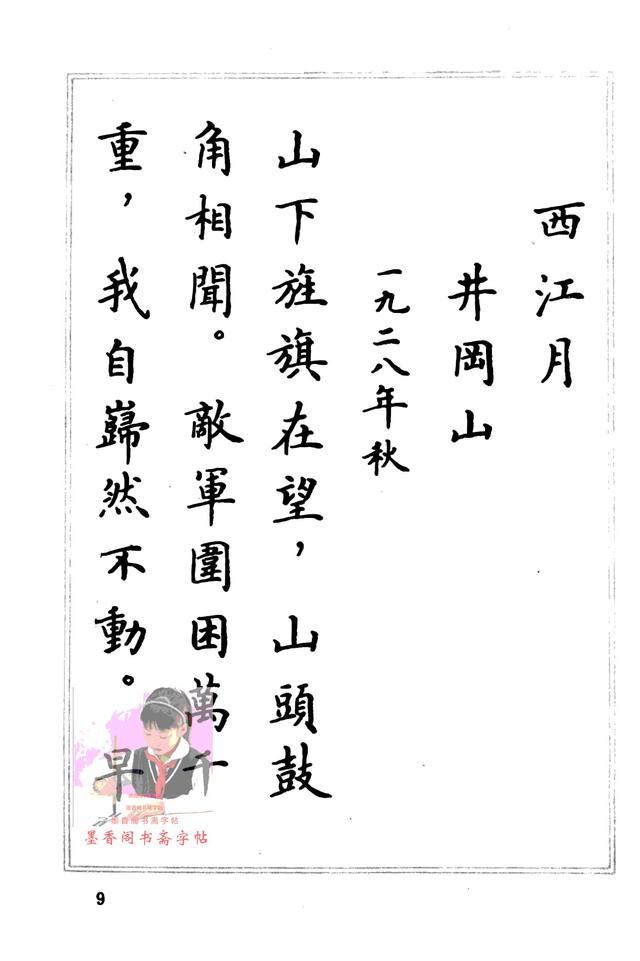 西江月
井岡山
一九二八年秋
山下旌旗在望，山頭鼓
角相聞。敵軍圍困萬千
重，我自巋然不動。早
墨香阁书斋字帖
墨香阁书斋字帖
9